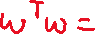 w^T w =